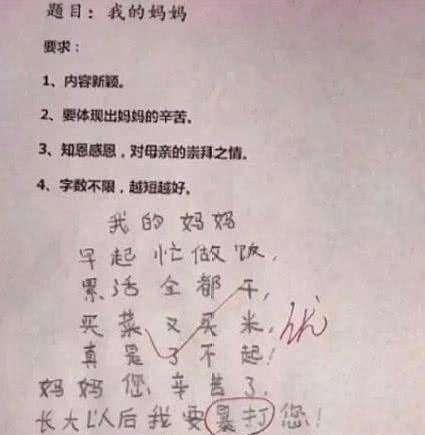 题目：我的妈妈
要求：
1、内容新颖。
2、要体现出妈妈的辛苦。
3、知恩感恩，对母亲的崇拜之情。
4、字数不限，越短越好。
我的妈妈
早起忙做饭，
累活全都干，
买菜又买米，
真是了不起！
妈妈您辛苦了，
长大以后我要暴打您！
优